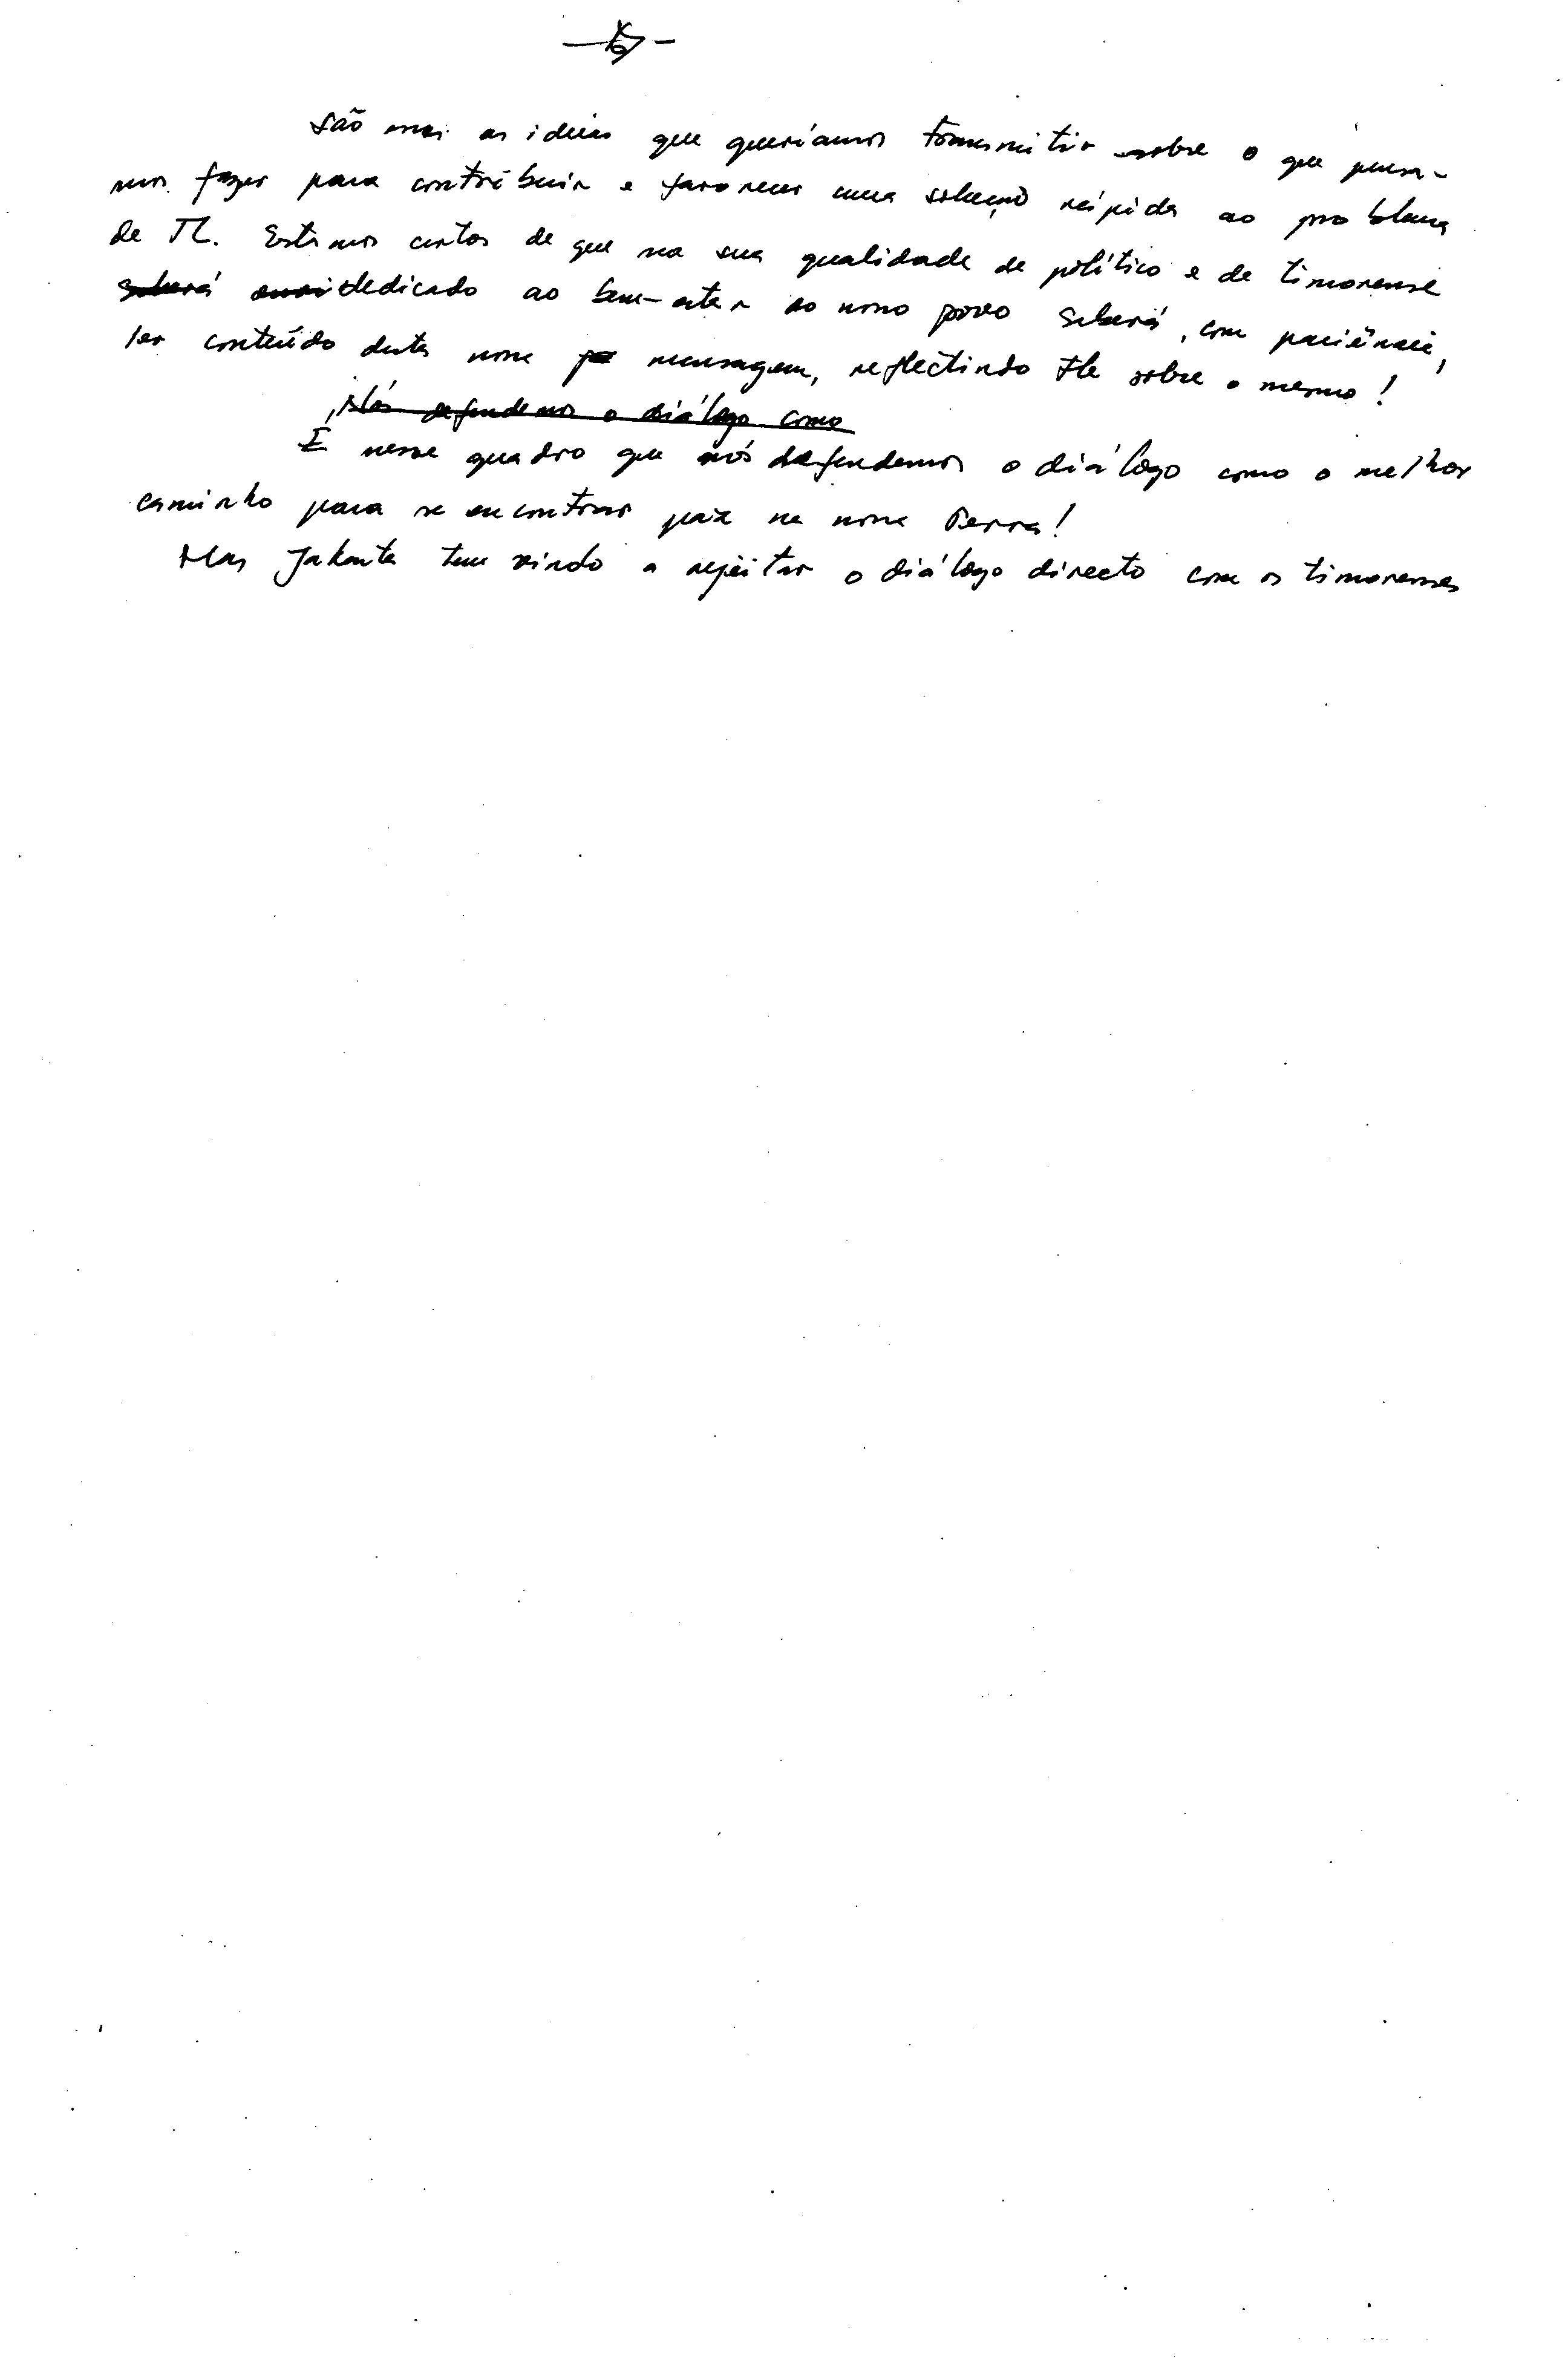 São essas as ideias que queríamos transmitir sobre o que pensa-
mos fazer para contribuir e favorecer uma solução rápida ao problema
de TL. Estamos certos de que na sua qualidade de político e de timorense
saberá dedicado ao bem-estar do nosso povo saberá, com paciência,
ler conteúdo desta nossa mensagem, reflectindo sobre o mesmo!
Nós defendemos o diálogo como
É nesse quadro que nós defendemos o diálogo como o melhor
caminho para se encontrar paz na nossa Terra!
Mas Jakarta tem vindo a rejeitar o diálogo directo com os timorenses